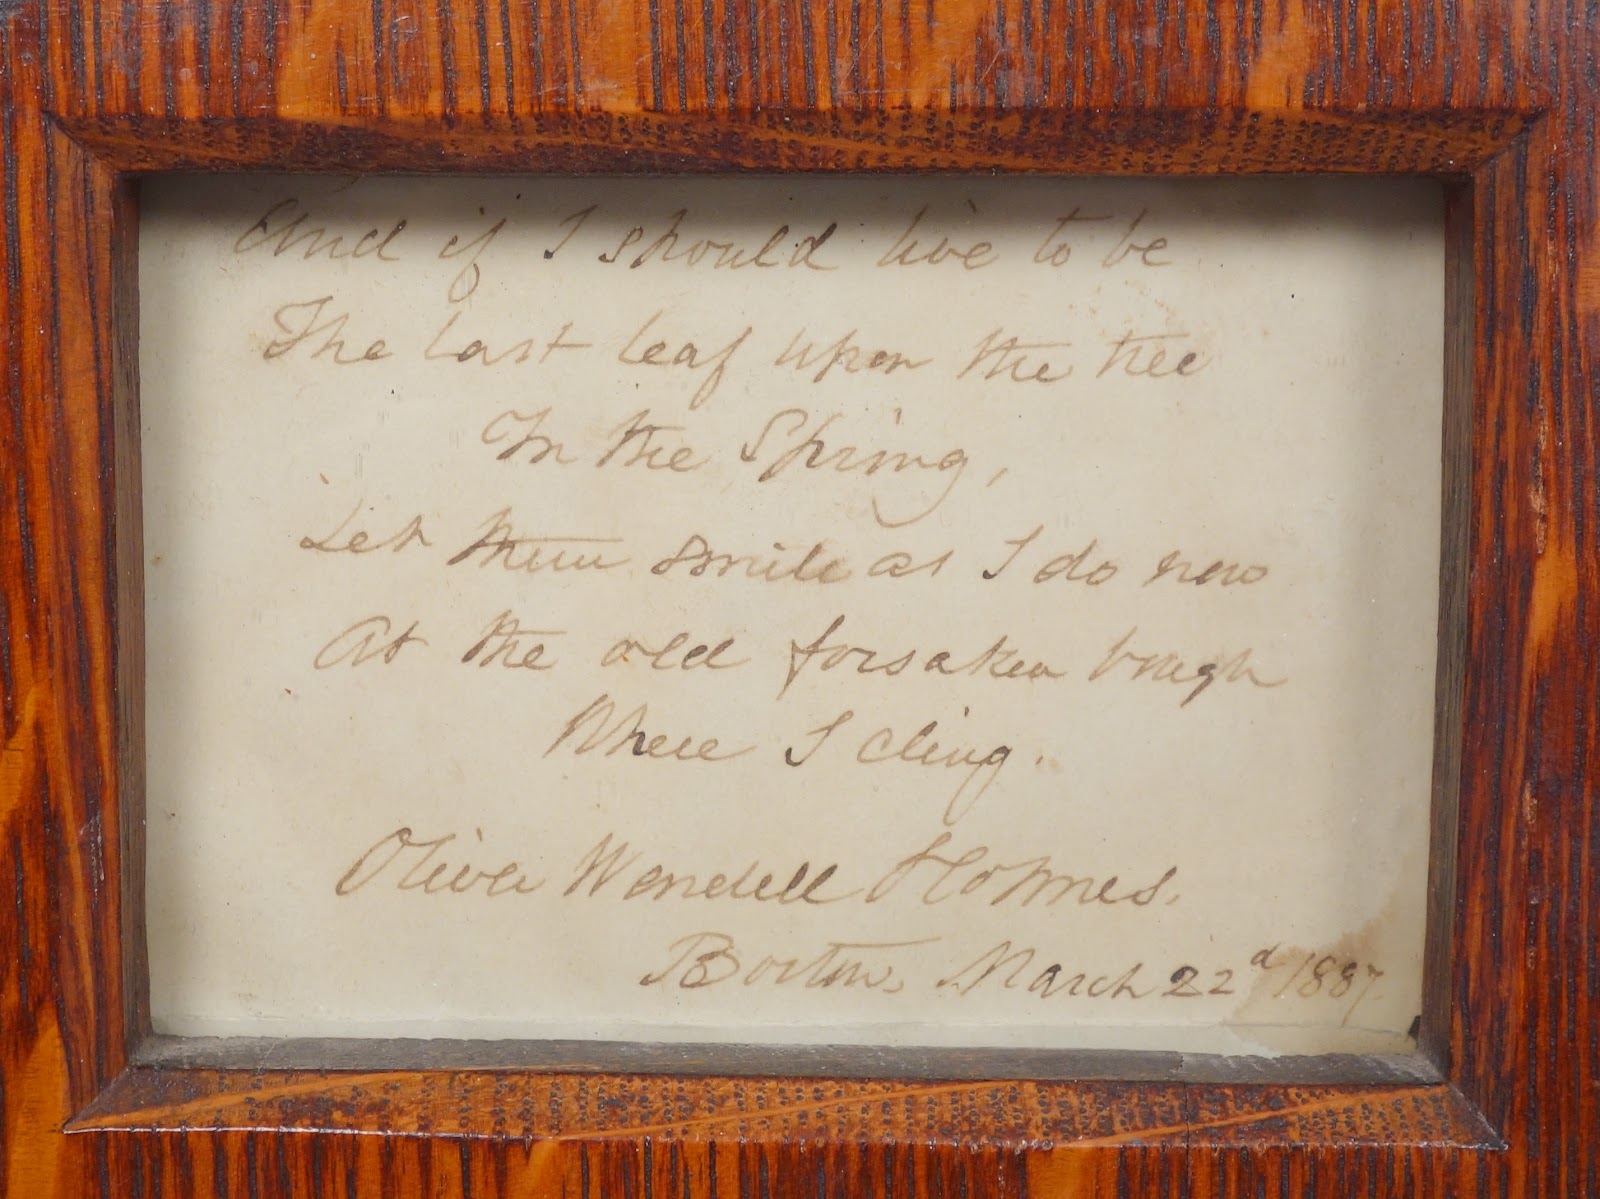 And if I should live to be
The last leaf upon the tree
In the Spring,
Let them smile as I do now
At the old forsaken bough
Where I cling.
Oliver Wendell Holmes.
Boston, March 22d 1887.